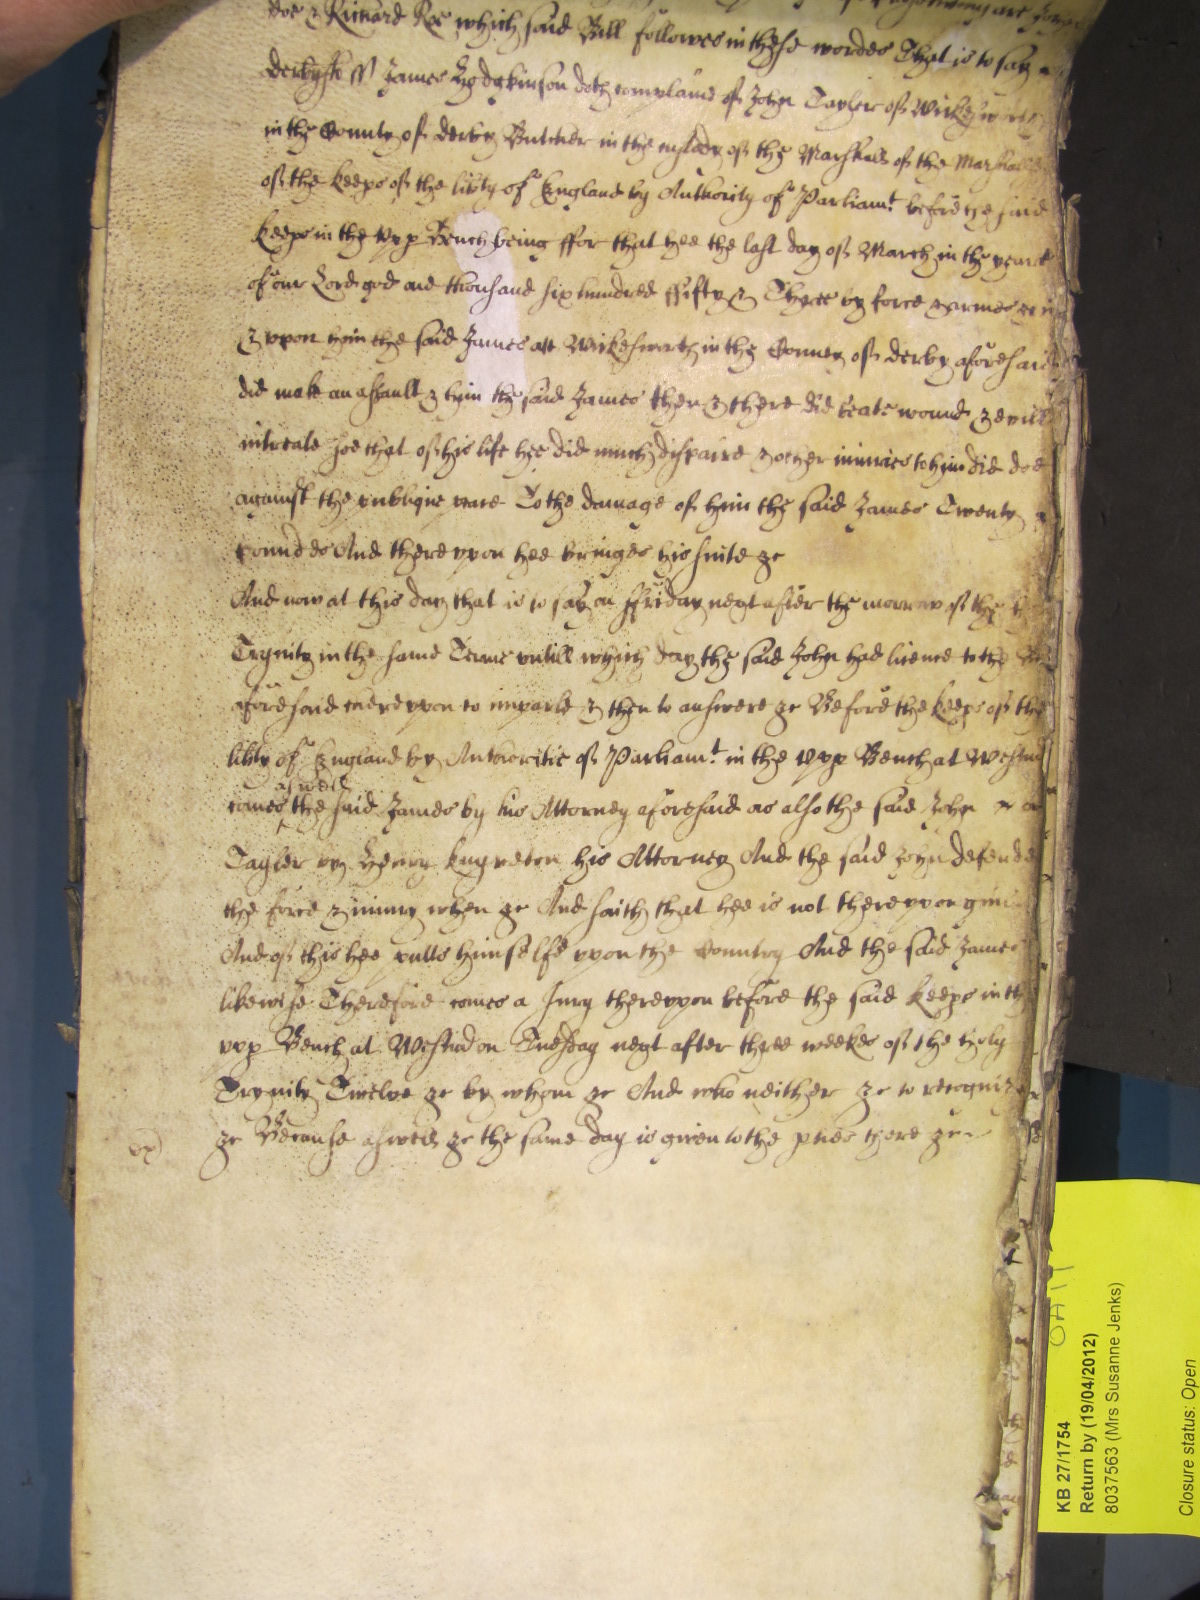 Doe & Richard Roe which said Bill followes in these wordes That is to say
Derbysh ss James Hodgkinson doth complaine of John Tayler of Wirkesworth
in the County of Derby Butcher in the custody of the Marshall of the Marshalsie
of the keeps of the libty of England by Authority of Parliamt before the said
keeps in the vpp Bench being ffor that hee the last day of March in the yeare
of our Lord god one thousand six hundred ffifty & Three by force & armes &c in
& vpon him the said James att Wirkesworth in the County of Derby aforesaid
did make an assault & him the said James then & there did beate wound & evill
intreate soe that of his life hee did much dispaire & other iniuries to him did doe
against the publique peace To the damage of him the said James Twenty
poundes And therevpon hee bringes his suite &c
And now at this day that is to say on ffriday next after the morrow of the
Trynity in the same Terme vntill which day the said John had licence to the Bill
aforesaid therevpon to imparle & then to answere &c Before the keeps of the
libty of England by Authoritie of Parliamt in the vpp Bench at Westm
aswell
comes the said James by his Attorney aforesaid as also the said John
Tayler by Henry Knyveton his Attorney And the said John defendes
the force & iniury when &c And saith that hee is not therevpon
And of this hee putts himselfe vpon the Country And the said James
likewise Therefore comes a Jury therevpon before the said keeps in the
vpp Bench at Westm on Tuesday next after three weekes of the holy
Trynity Twelve &c by whom &c And who neither &c to recognize
&c Because aswell &c the same day is given to the pties there &c
KB 27/1754
Return by (19/04/2012)
8037563 (Mrs Susanne Jenks)
Closure status: Open